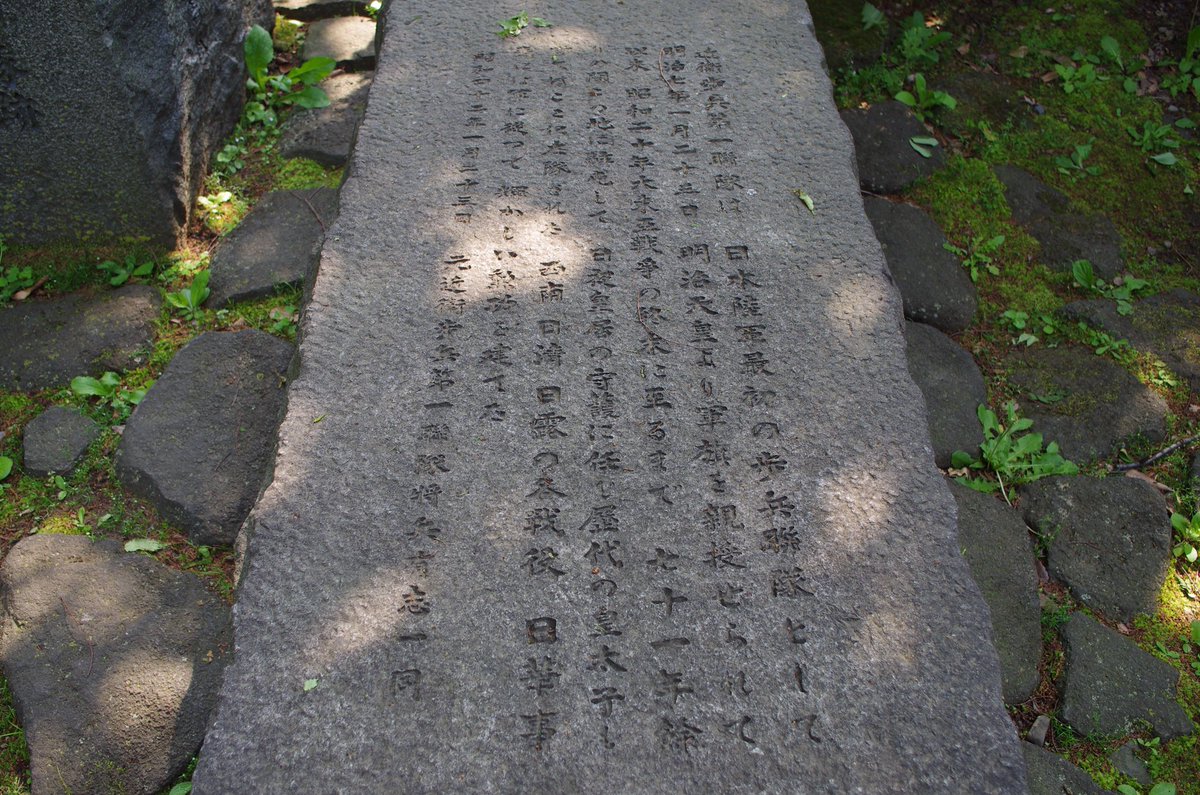 近衛歩兵第一聯隊は 日本陸軍最初の歩兵聯隊として
明治七年一月二十三日 明治天皇より軍旗を親授せられて
以来 昭和二十年大東亜戦争の終末に至るまで 七十一年余
の間この地に駐屯して 日夜皇居の守護に任じ歴代の皇太子も
ここに入隊された 西南 日清 日露の各戦役 日華事
に従って輝かしい勲功を建てた
四十二年一月二十三日 元近衛歩兵第一聯隊将兵有志一同